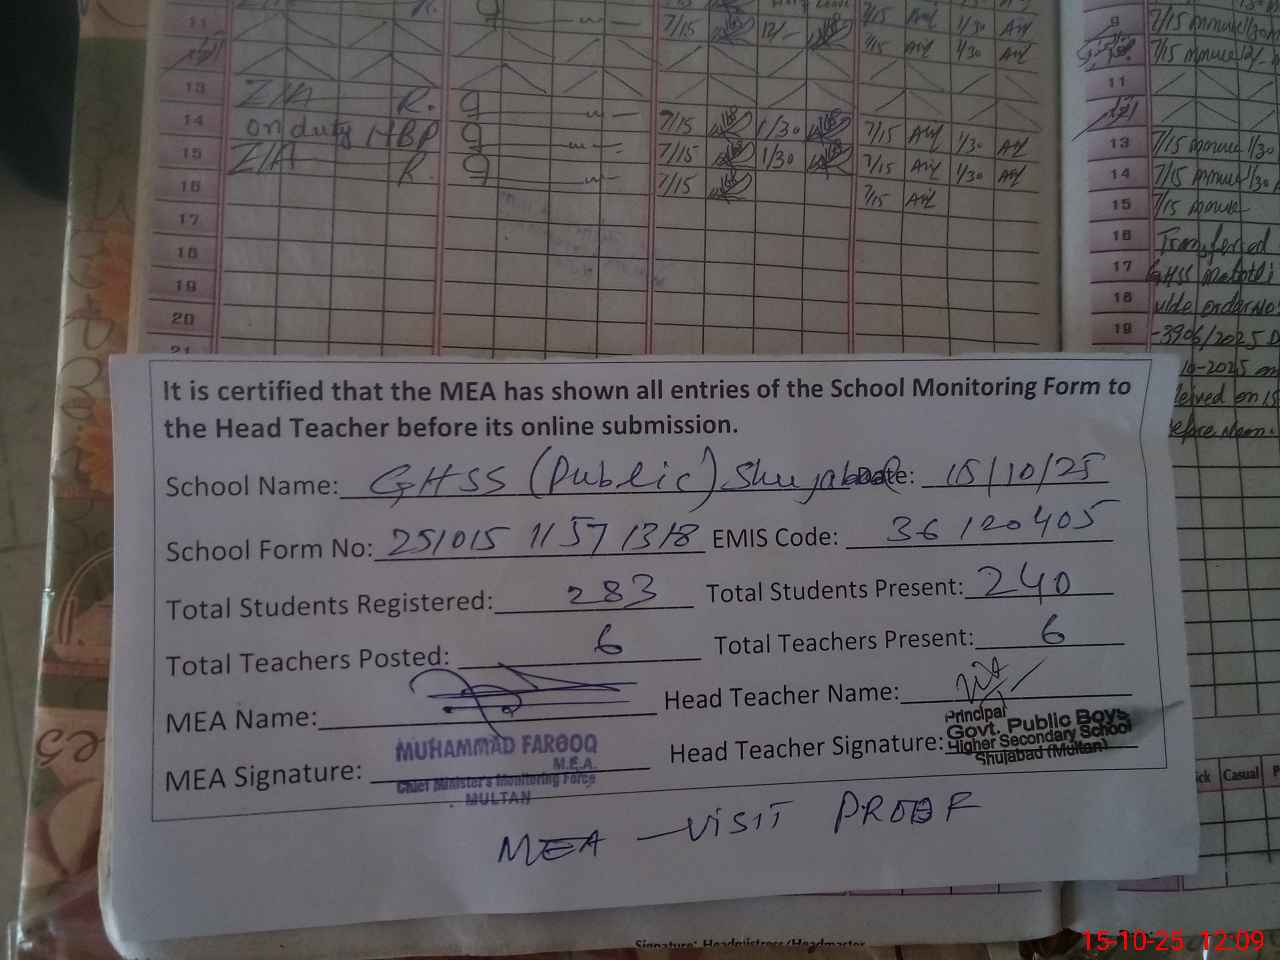 11 7/15 12/- 7/15 1/30
7/15 1/30
13
ZIA R.
14 on duty HBP 7/15 1/30 7/15 1/30
15 ZIA R. 7/15 1/30 7/15 1/30
16 7/15 7/15
17
18
19
20
21
9 7/15
7/15 12/-
11
13 7/15 1/30
14 7/15 1/30
15 7/15
16 Transferred
17 GHSS
18 vide
19 -3906/2025
10-2025 on
on 15
before Noon.
It is certified that the MEA has shown all entries of the School Monitoring Form to
the Head Teacher before its online submission.
School Name: GHSS (Public) Shujabad Date: 15/10/25
School Form No: 251015 1157 1318 EMIS Code: 36120405
Total Students Registered: 283 Total Students Present: 240
Total Teachers Posted: 6 Total Teachers Present: 6
MEA Name: Head Teacher Name:
MEA Signature: Head Teacher Signature:
MUHAMMAD FAROOQ
M.E.A.
Chief Minister's Monitoring Force
MULTAN
Principal
Govt. Public Boys
Higher Secondary School
Shujabad (Multan)
MEA - VISIT PROOF
Casual
Signature: Headmistress/Headmaster
15-10-25 12:09